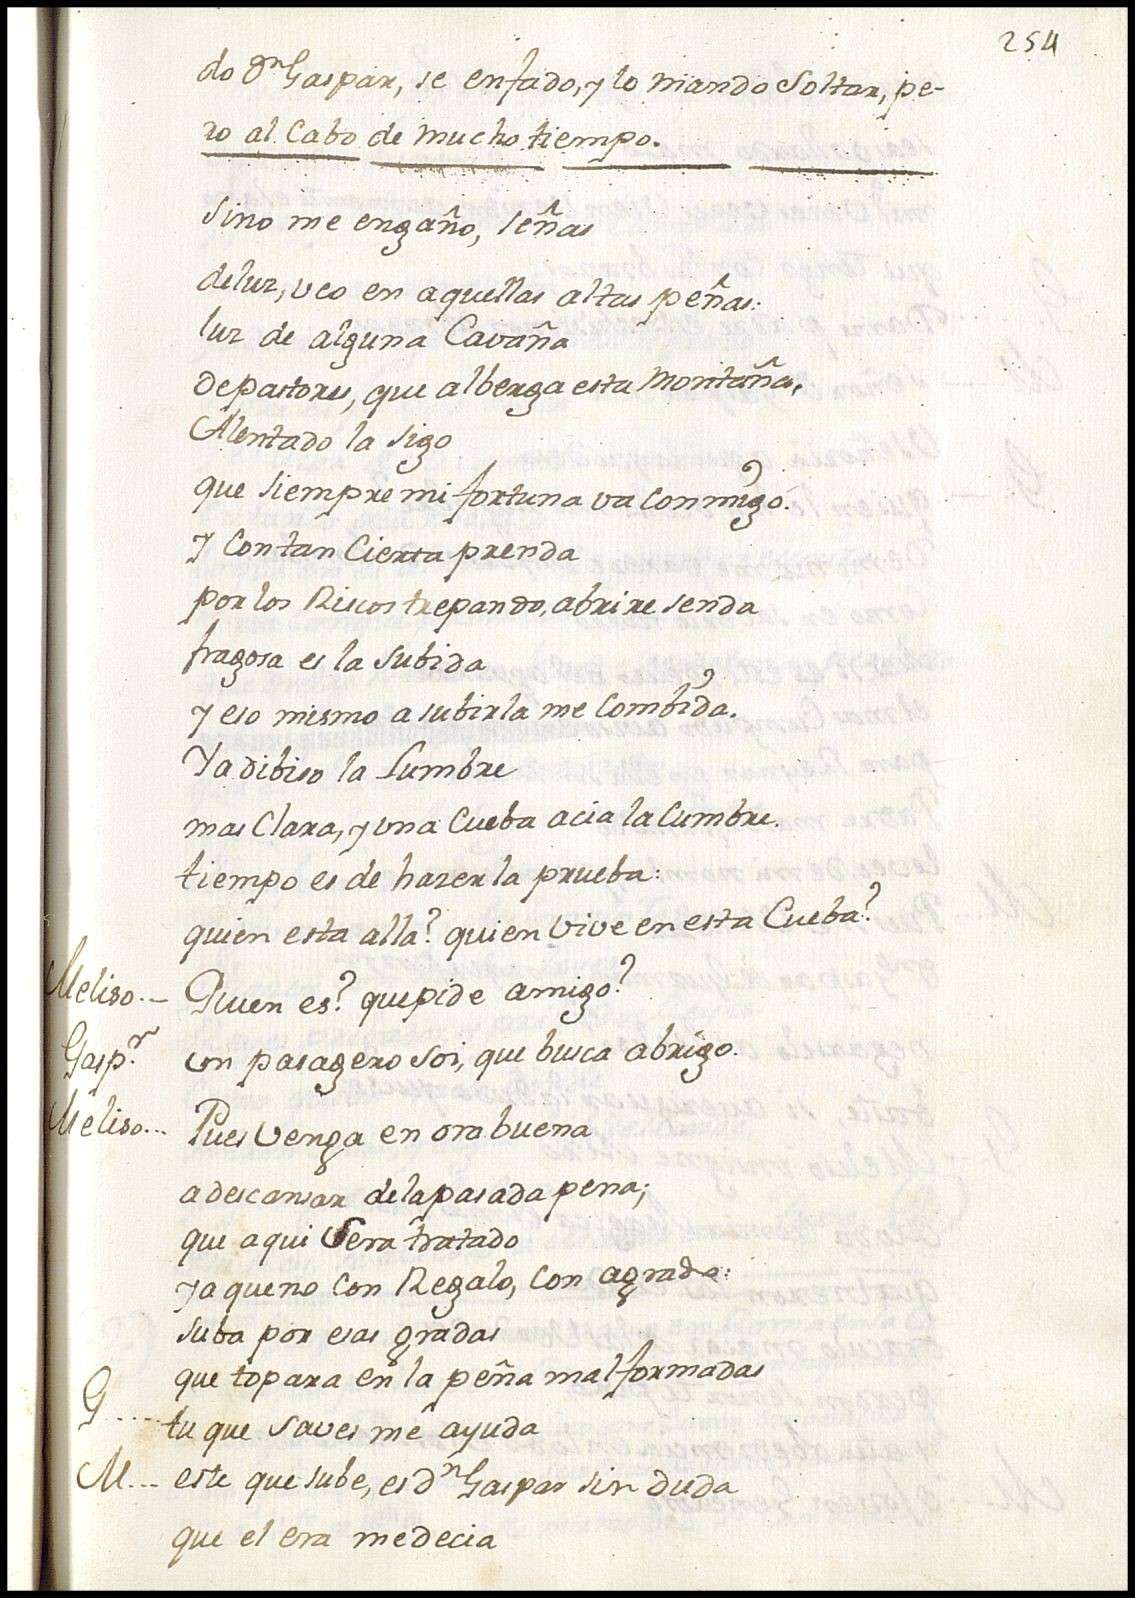 254
do Dn Gaspar, se enfado, y lo mando Soltar, pe-
ro al Cabo de mucho tiempo.
Sino me engaño, señas
deluz, veo en aquellas altas peñas:
luz de alguna Cavaña
depastores, que alberga esta Montaña,
Alentado la sigo
que siempre mi fortuna va conmigo.
Y Con tan Cierta prenda
por los Riscos trepando, abrire senda
fragosa es la Subida
y eso mismo a subirla me Combida.
Ya dibiso la Lumbre
mas Clara, y una Cueba acia la Cumbre.
tiempo es de hazer la prueba:
quien esta alla? quien vive en esta Cueba?
Meliso... Quien es? que pide amigo?
Gaspr. un pasagero soi, que busca abrigo.
Meliso... Pues Venga en ora buena
a descansar de la pasada pena;
que aqui Sera tratado
ya que no con Regalo, con agrado:
suba por esas gradas
que topara en la peña mal formadas
G.... tu que saves me ayuda
M... este que sube, es Dn Gaspar sin duda
que el era me decia